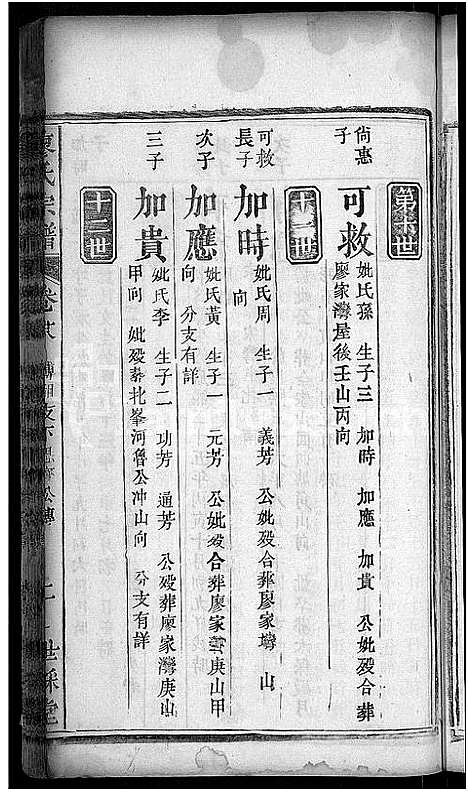 第十世
尚惠子
可救 妣氏孫 生子三 加時 加應 加貴 公妣歿合葬
廖家灣屋後壬山丙向
十一世
可救長子
加時 妣氏周 生子一 義芳 公妣歿合葬廖家塆 山
向
次子
加應 妣氏黃 生子一 元芳 公妣歿合葬廖家 庚山甲
向 分支有詳
三子
加貴 妣氏李 生子二 功芳 通芳 公歿葬廖家灣庚山
甲向 妣歿葬 峯河魯公冲山向 分支有詳
十二世
氏宗譜 卷 支下 公傳